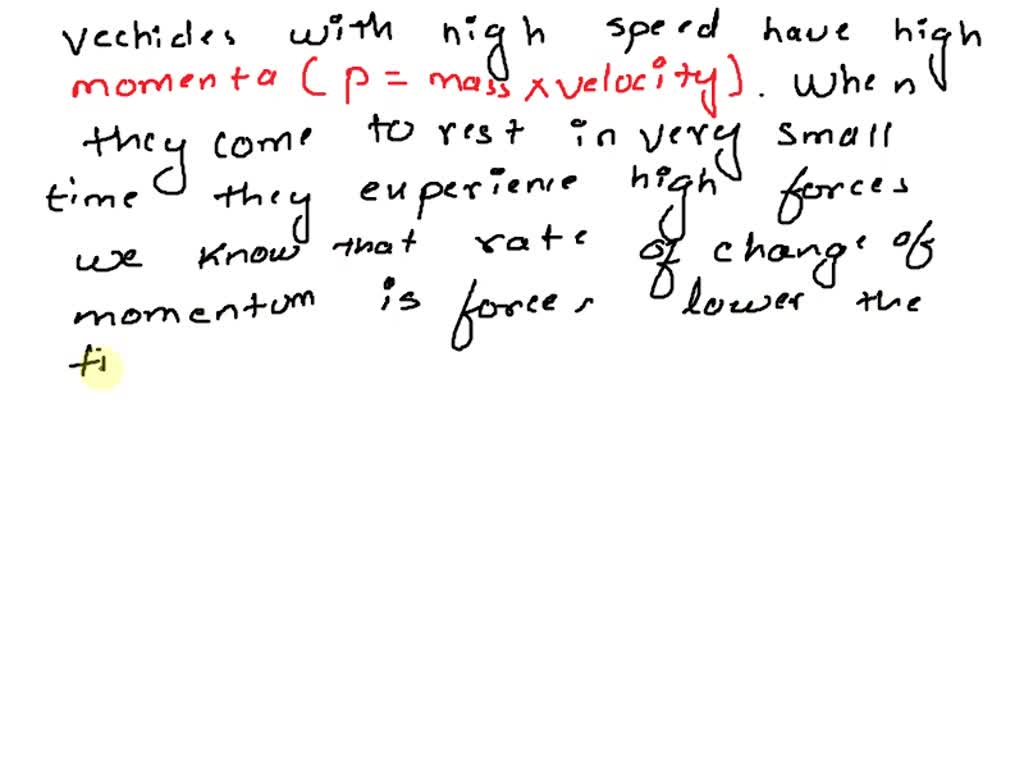 vechicles with high speed have high
momenta (p = mass x velocity). When
they come to rest in very small
time they experience high forces
we know that rate of change of
momentum is forces lower the
ti